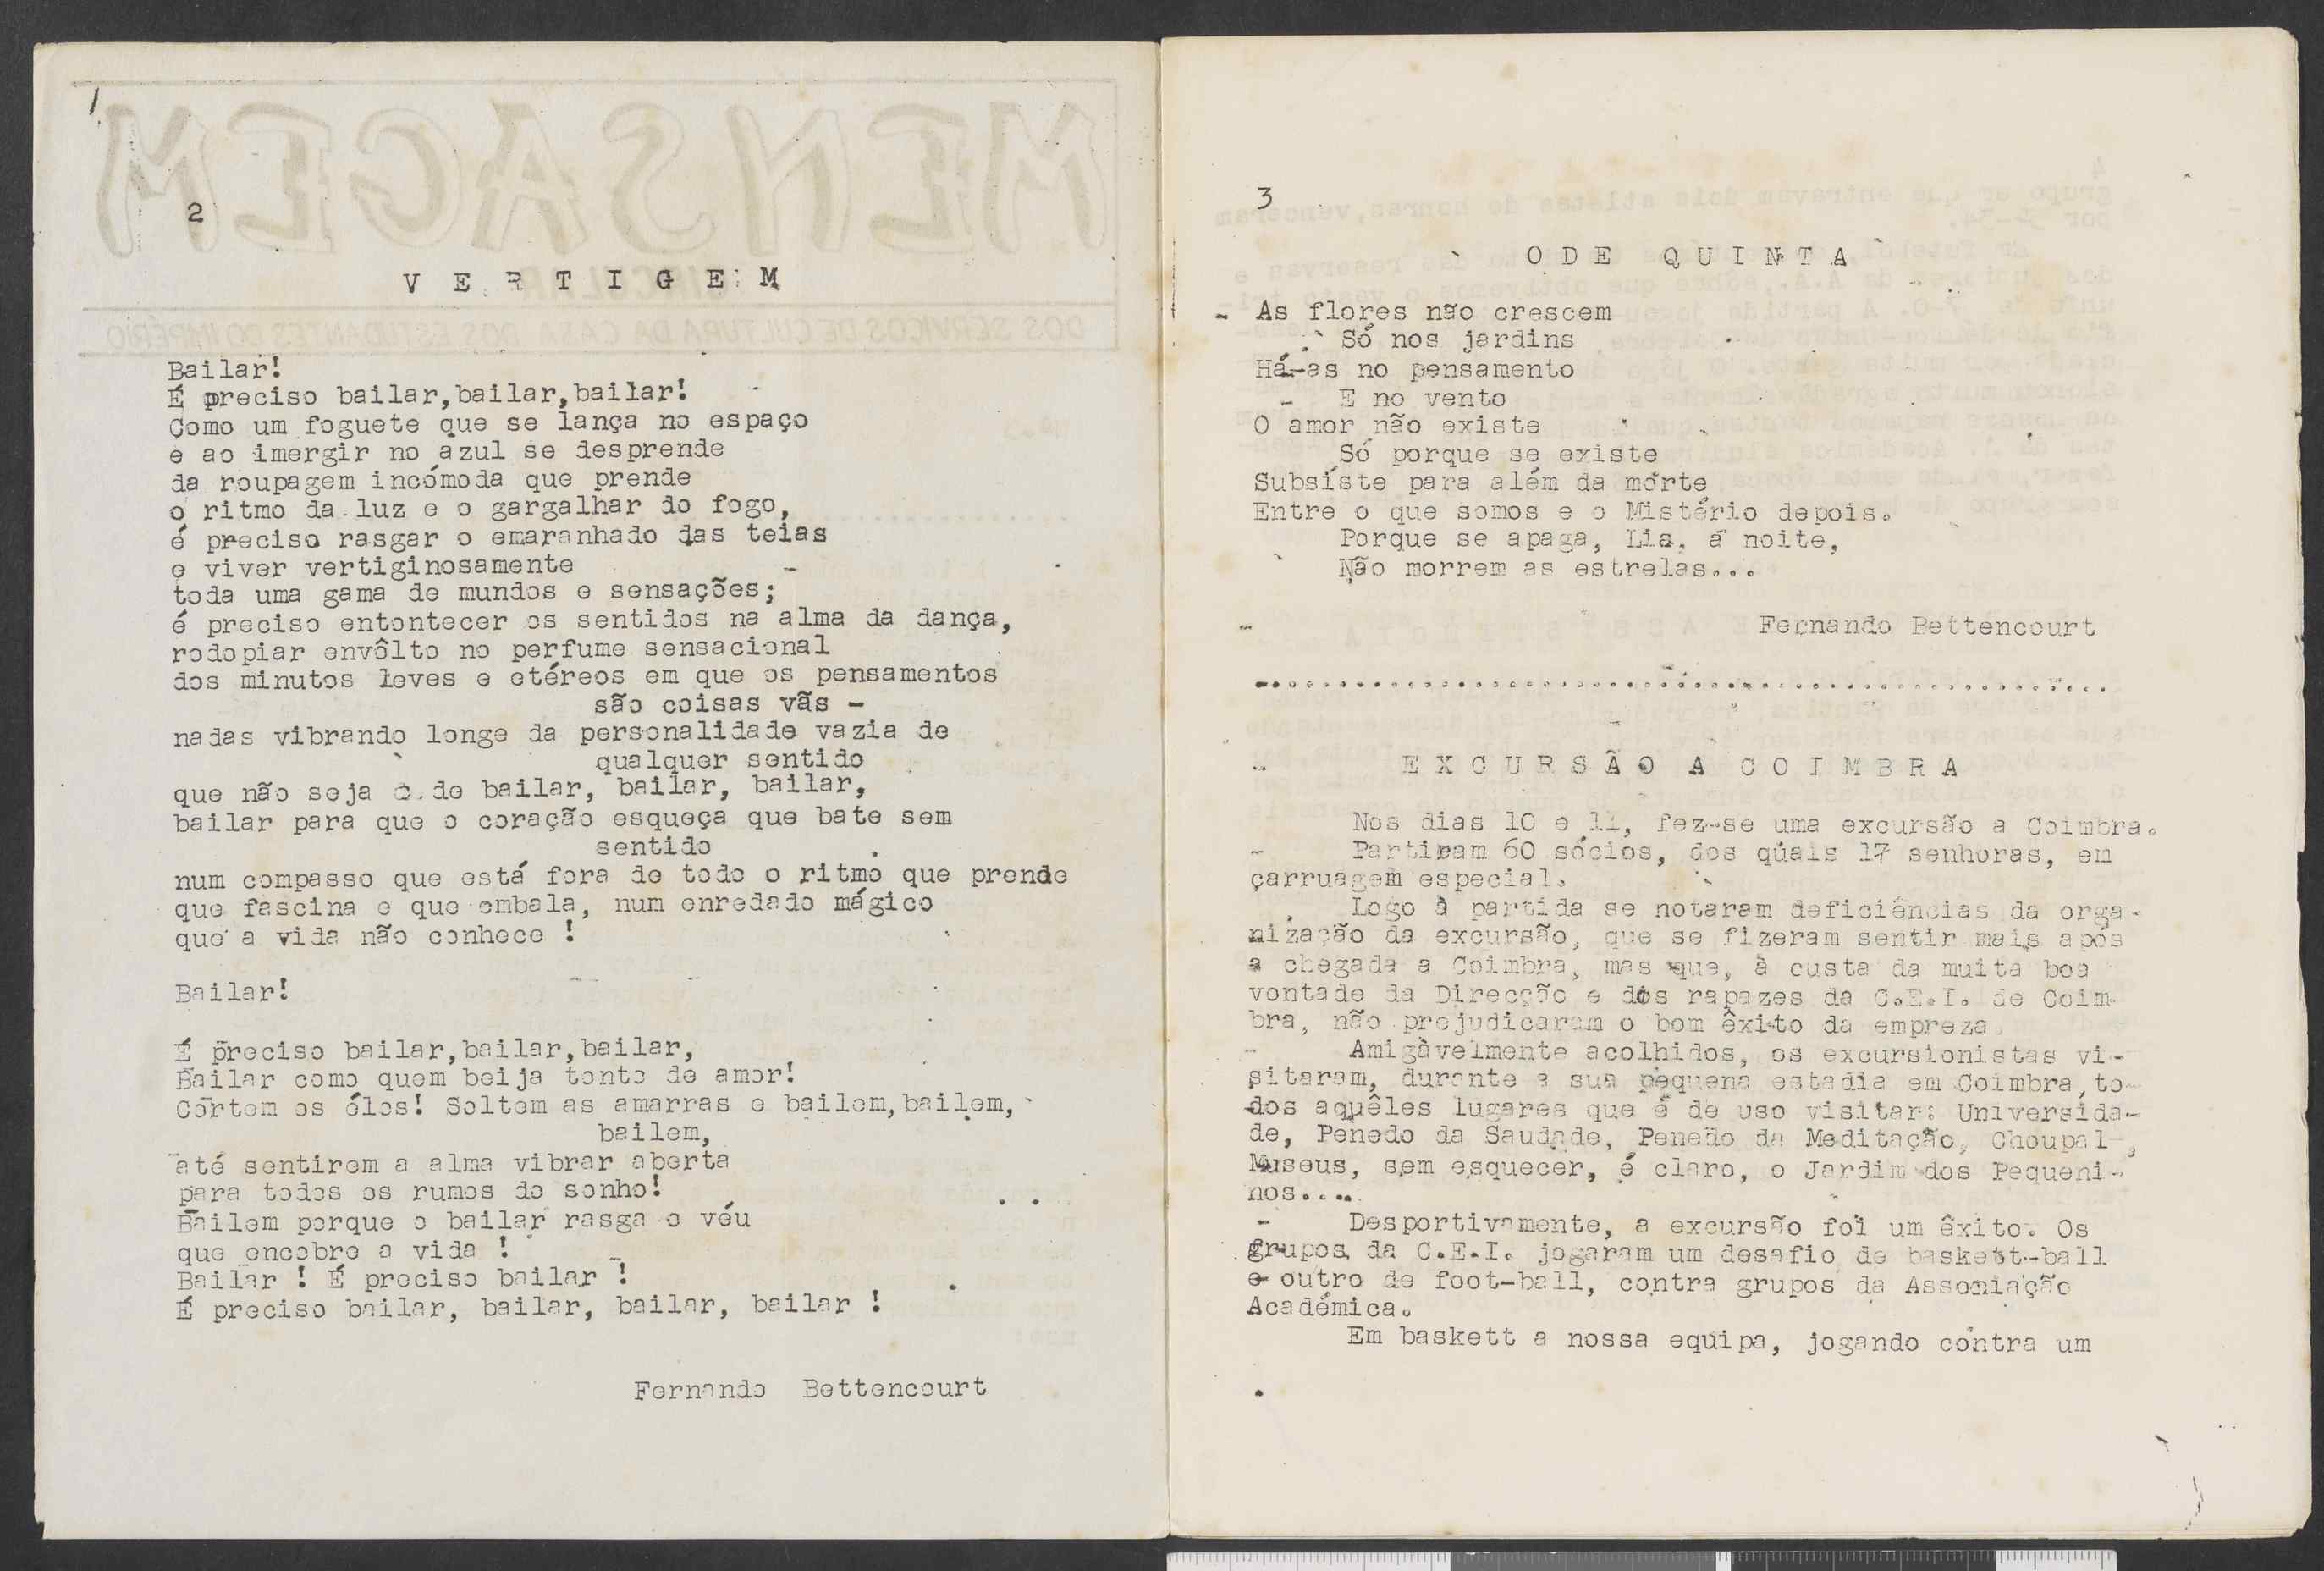 2
V E R T I G E M
Bailar!
É preciso bailar,bailar,bailar!
Como um foguete que se lança no espaço
e ao imergir no azul se desprende
da roupagem incómoda que prende
o ritmo da luz e o gargalhar do fogo,
é preciso rasgar o emaranhado das teias
e viver vertiginosamente
toda uma gama de mundos e sensações;
é preciso entontecer os sentidos na alma da dança,
rodopiar envôlto no perfume sensacional
dos minutos leves e etéreos em que os pensamentos
são coisas vãs -
nadas vibrando longe da personalidade vazia de
qualquer sentido
que não seja o de bailar, bailar, bailar,
bailar para que o coração esqueça que bate sem
sentido
num compasso que está fora de todo o ritmo que prende
que fascina e que embala, num enredado mágico
que a vida não conhece !
Bailar!
É preciso bailar,bailar,bailar,
Bailar como quem beija tonto de amor!
Cortem os élos! Soltem as amarras e bailem,bailem,
bailem,
até sentirem a alma vibrar aberta
para todos os rumos do sonho!
Bailem porque o bailar rasga o véu
que encobre a vida !
Bailar ! É preciso bailar !
É preciso bailar, bailar, bailar, bailar !
Fernando Bettencourt
3
O D E Q U I N T A
As flores não crescem
Só nos jardins
Há-as no pensamento
E no vento
O amor não existe
Só porque se existe
Subsíste para além da morte
Entre o que somos e o Mistério depois.
Porque se apaga, Lia, á noite,
Não morrem as estrelas...
Fernando Bettencourt
E X C U R S Ã O A C O I M B R A
Nos dias 10 e 11, fez-se uma excursão a Coimbra.
Partiram 60 sócios, dos quais 17 senhoras, em
carruagem especial.
Logo à partida se notaram deficiências da orga-
nização da excursão, que se fizeram sentir mais após
a chegada a Coimbra, mas que, à custa da muita boa
vontade da Direcção e dos rapazes da C.E.I. de Coim-
bra, não prejudicaram o bom êxito da empreza.
Amigàvelmente acolhidos, os excursionistas vi-
sitaram, durante a sua pequena estadia em Coimbra,to-
dos aquêles lugares que é de uso visitar: Universida-
de, Penedo da Saudade, Penedo da Meditação, Choupal ,
Museus, sem esquecer, é claro, o Jardim dos Pequeni-
nos....
Desportivamente, a excursão foi um êxito. Os
grupos da C.E.I. jogaram um desafio de baskett-ball
e outro de foot-ball, contra grupos da Assoniação
Académica.
Em baskett a nossa equipa, jogando contra um